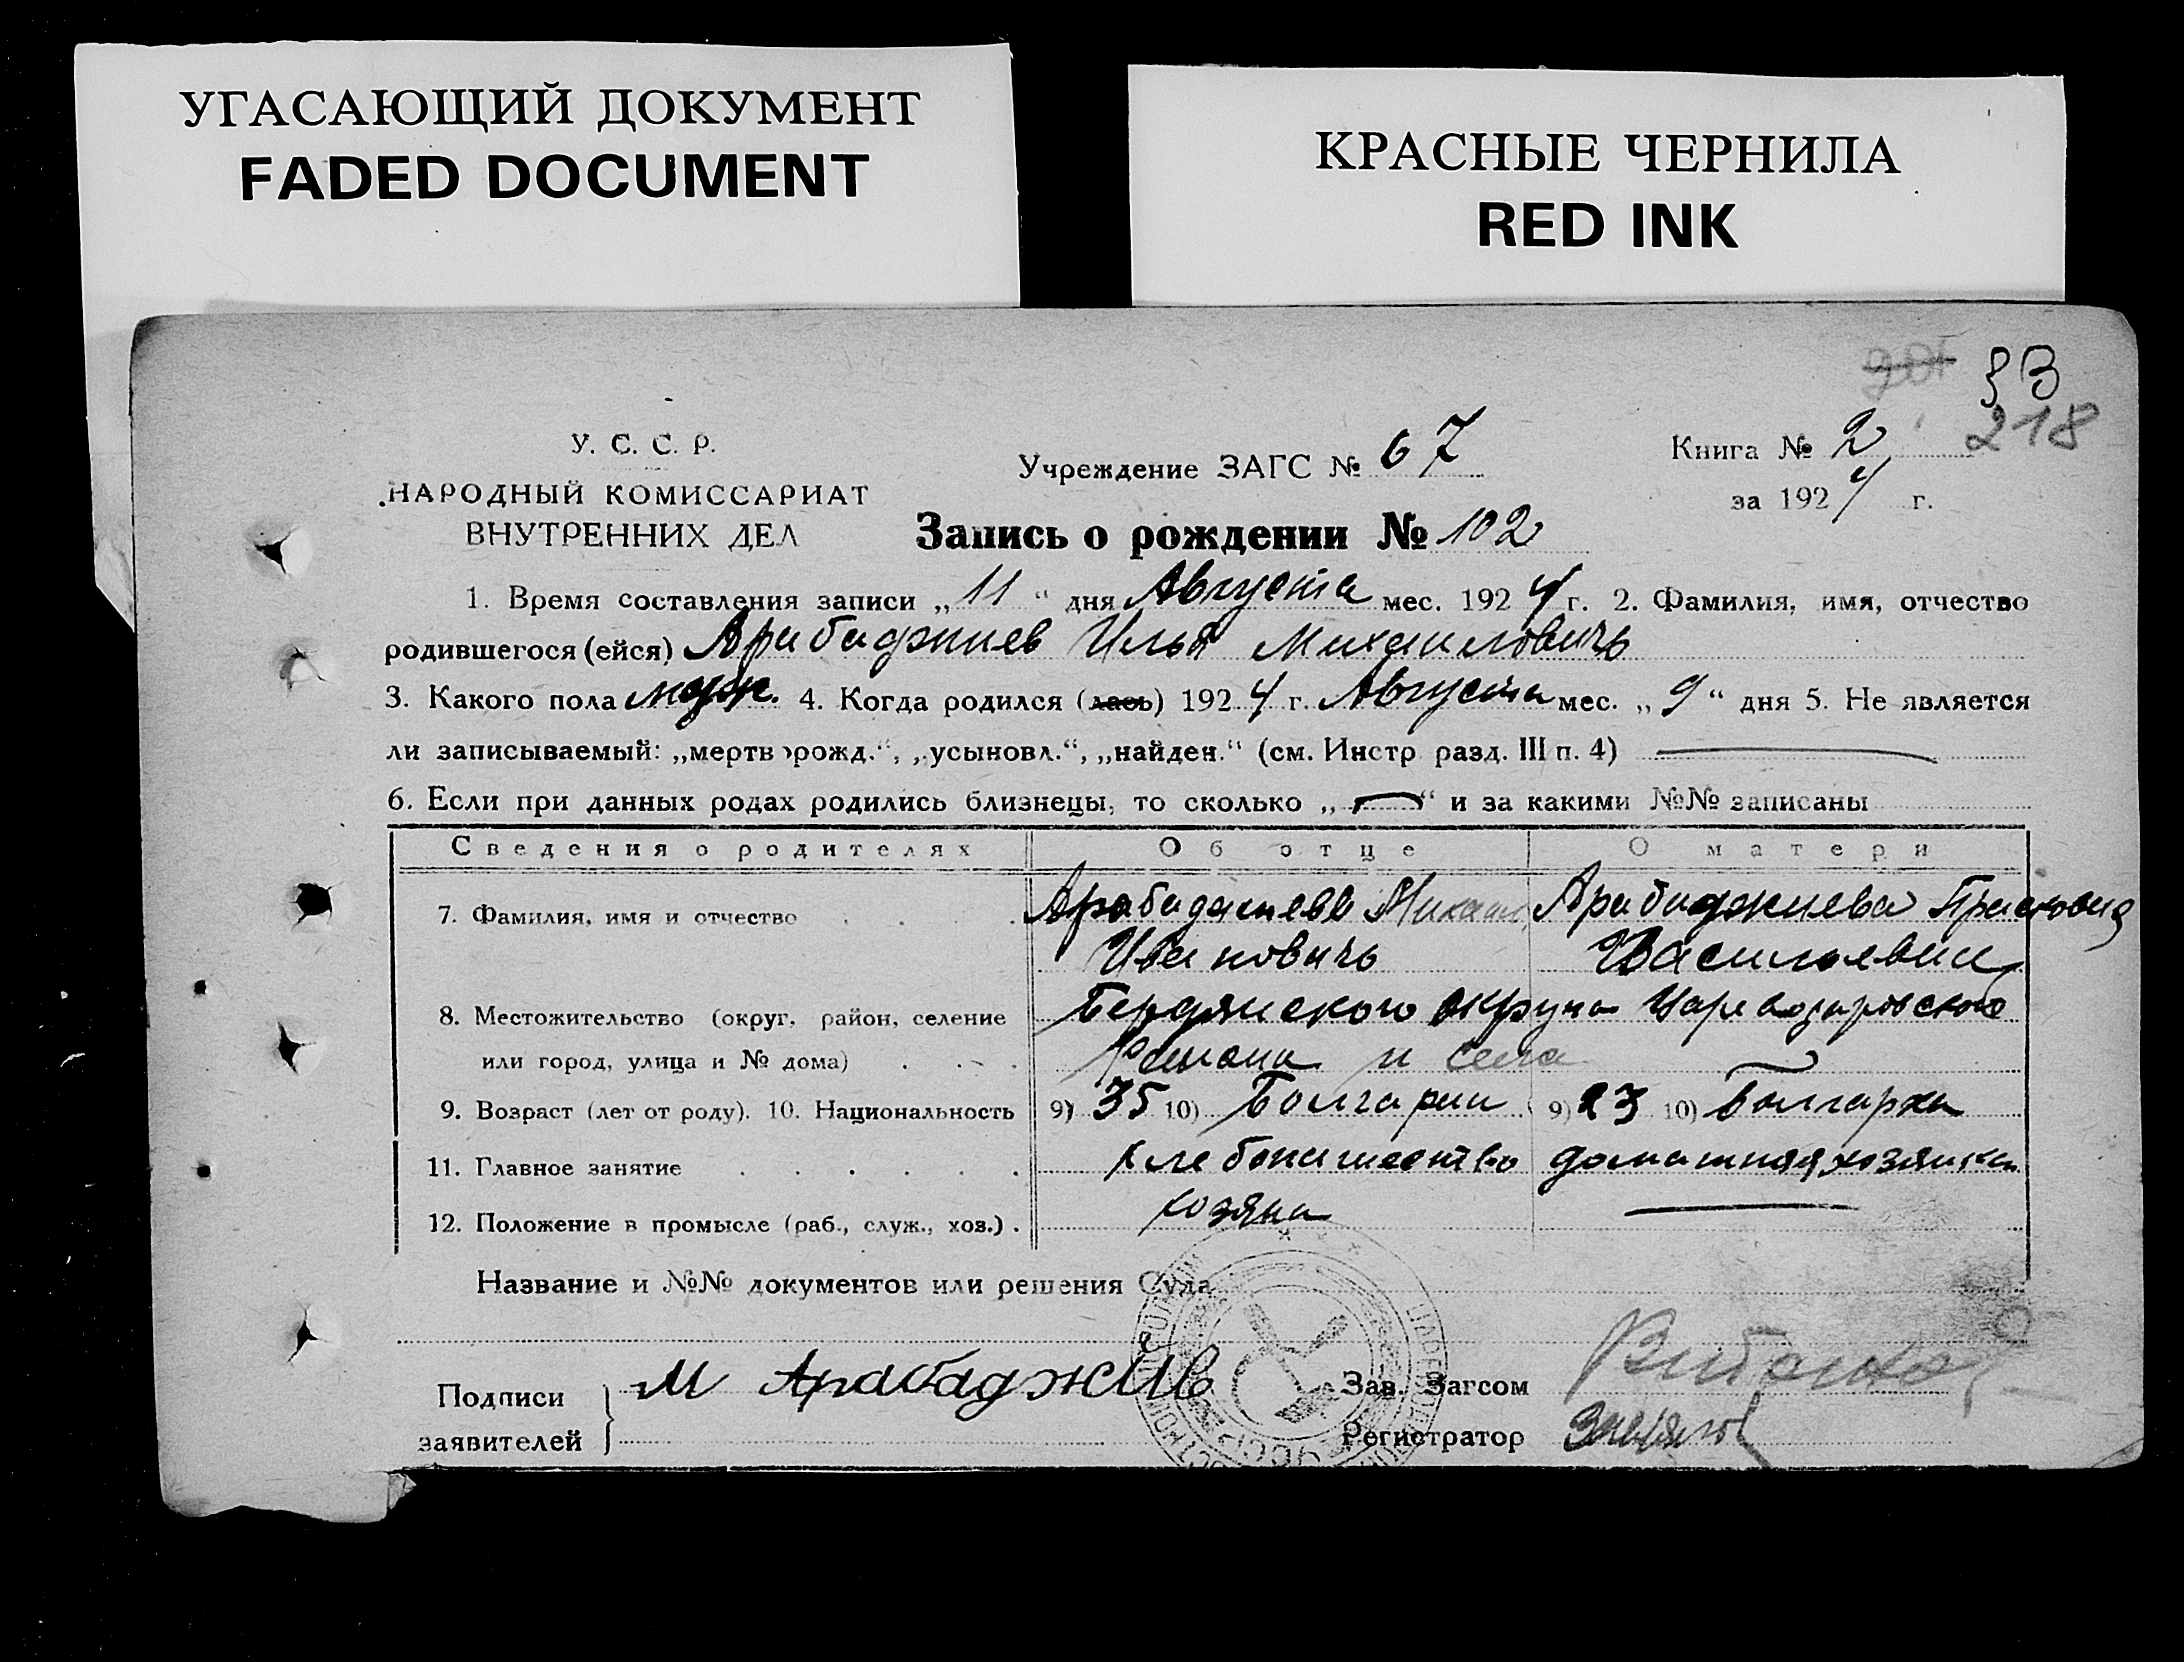 УГАСАЮЩИЙ ДОКУМЕНТ
FADED DOCUMENT
КРАСНЫЕ ЧЕРНИЛА
RED INK
218
У. С. С. Р.
НАРОДНЫЙ КОМИССАРИАТ
ВНУТРЕННИХ ДЕЛ
Учреждение ЗАГС № 67
Книга № 2
за 1924 г.
Запись о рождении № 102
1. Время составления записи „11“ дня Августа мес. 1924 г. 2. Фамилия, имя, отчество
родившегося (ейся) Арабаджиев Илья Михаиловичъ
3. Какого пола муж. 4. Когда родился (лась) 1924 г. Августа мес. „9“ дня 5. Не является
ли записываемый: „мертворожд.“, „усыновл.“, „найден.“ (см. Инстр. разд. III п. 4)
6. Если при данных родах родились близнецы, то сколько „—“ и за какими №№ записаны
Сведения о родителях Об отце О матери
7. Фамилия, имя и отчество Арабаджиевъ Михаил Арабаджиева Прасковия
Ивановичъ Васильевна
8. Местожительство (округ, район, селение Бердянского округа Цареводаровского
или город, улица и № дома) Района и села
9. Возраст (лет от роду). 10. Национальность 9) 35 10) Болгарин 9) 23 10) Болгарка
11. Главное занятие хлебопашество домашняя хозяйка
12. Положение в промысле (раб., служ., хоз.) хозяин
Название и №№ документов или решения Суда
Подписи
заявителей
М Арабаджиів
Зав. Загсом
Регистратор